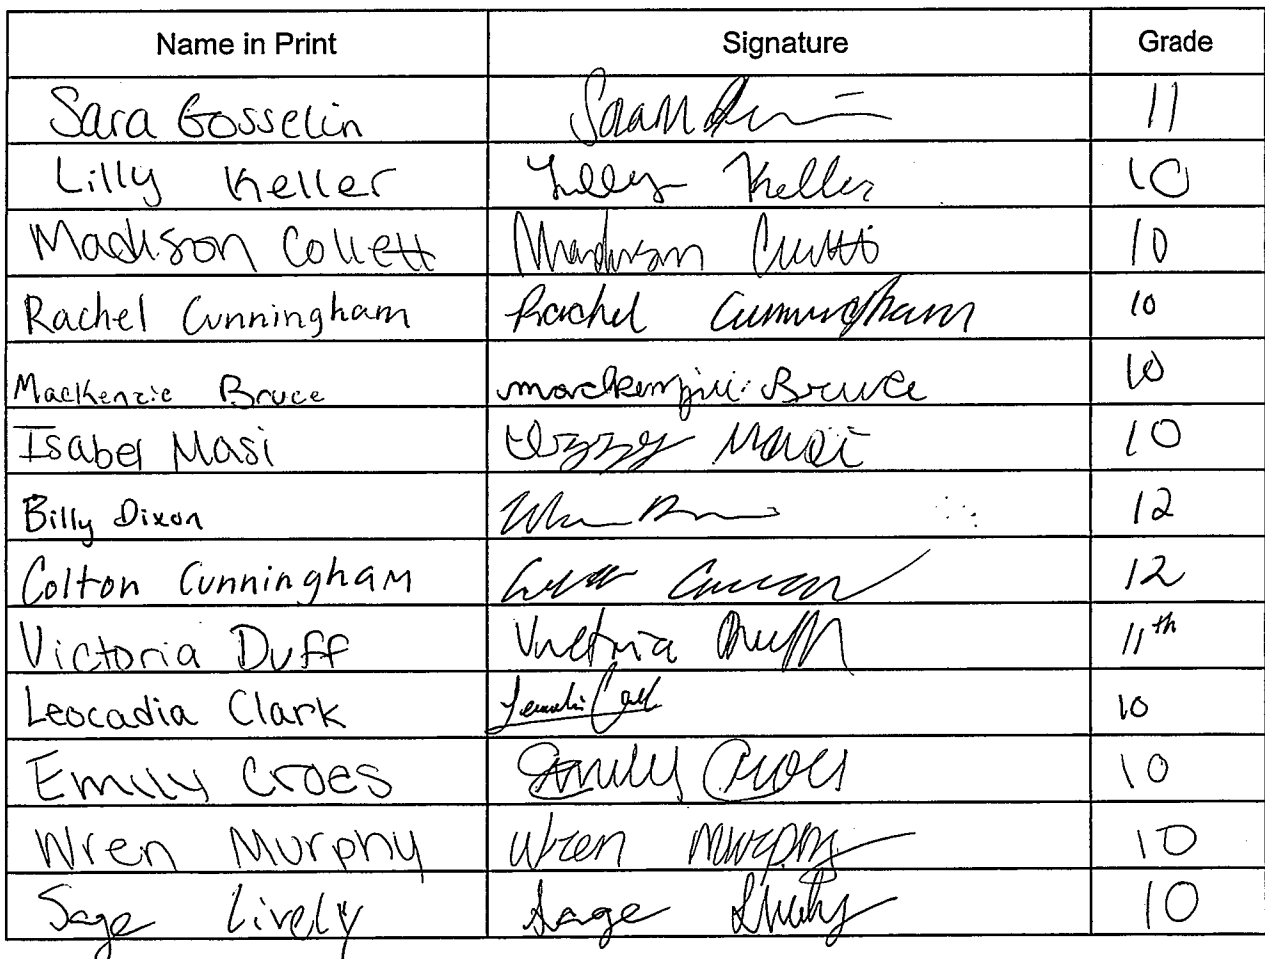 Name in Print Signature Grade
Sara Gosselin 11
Lilly Keller Lilly Keller 10
Madison Collett Madison 10
Rachel Cunningham Rachel Cunningham 10
Mackenzie Bruce mackenzie Bruce 10
Isabel Masi Izzy Masi 10
Billy Dixon 12
Colton Cunningham 12
Victoria Duff Victoria Duff 11th
Leocadia Clark 10
Emily Croes Emily Croes 10
Wren Murphy Wren Murphy 10
Sage Lively Sage Lively 10